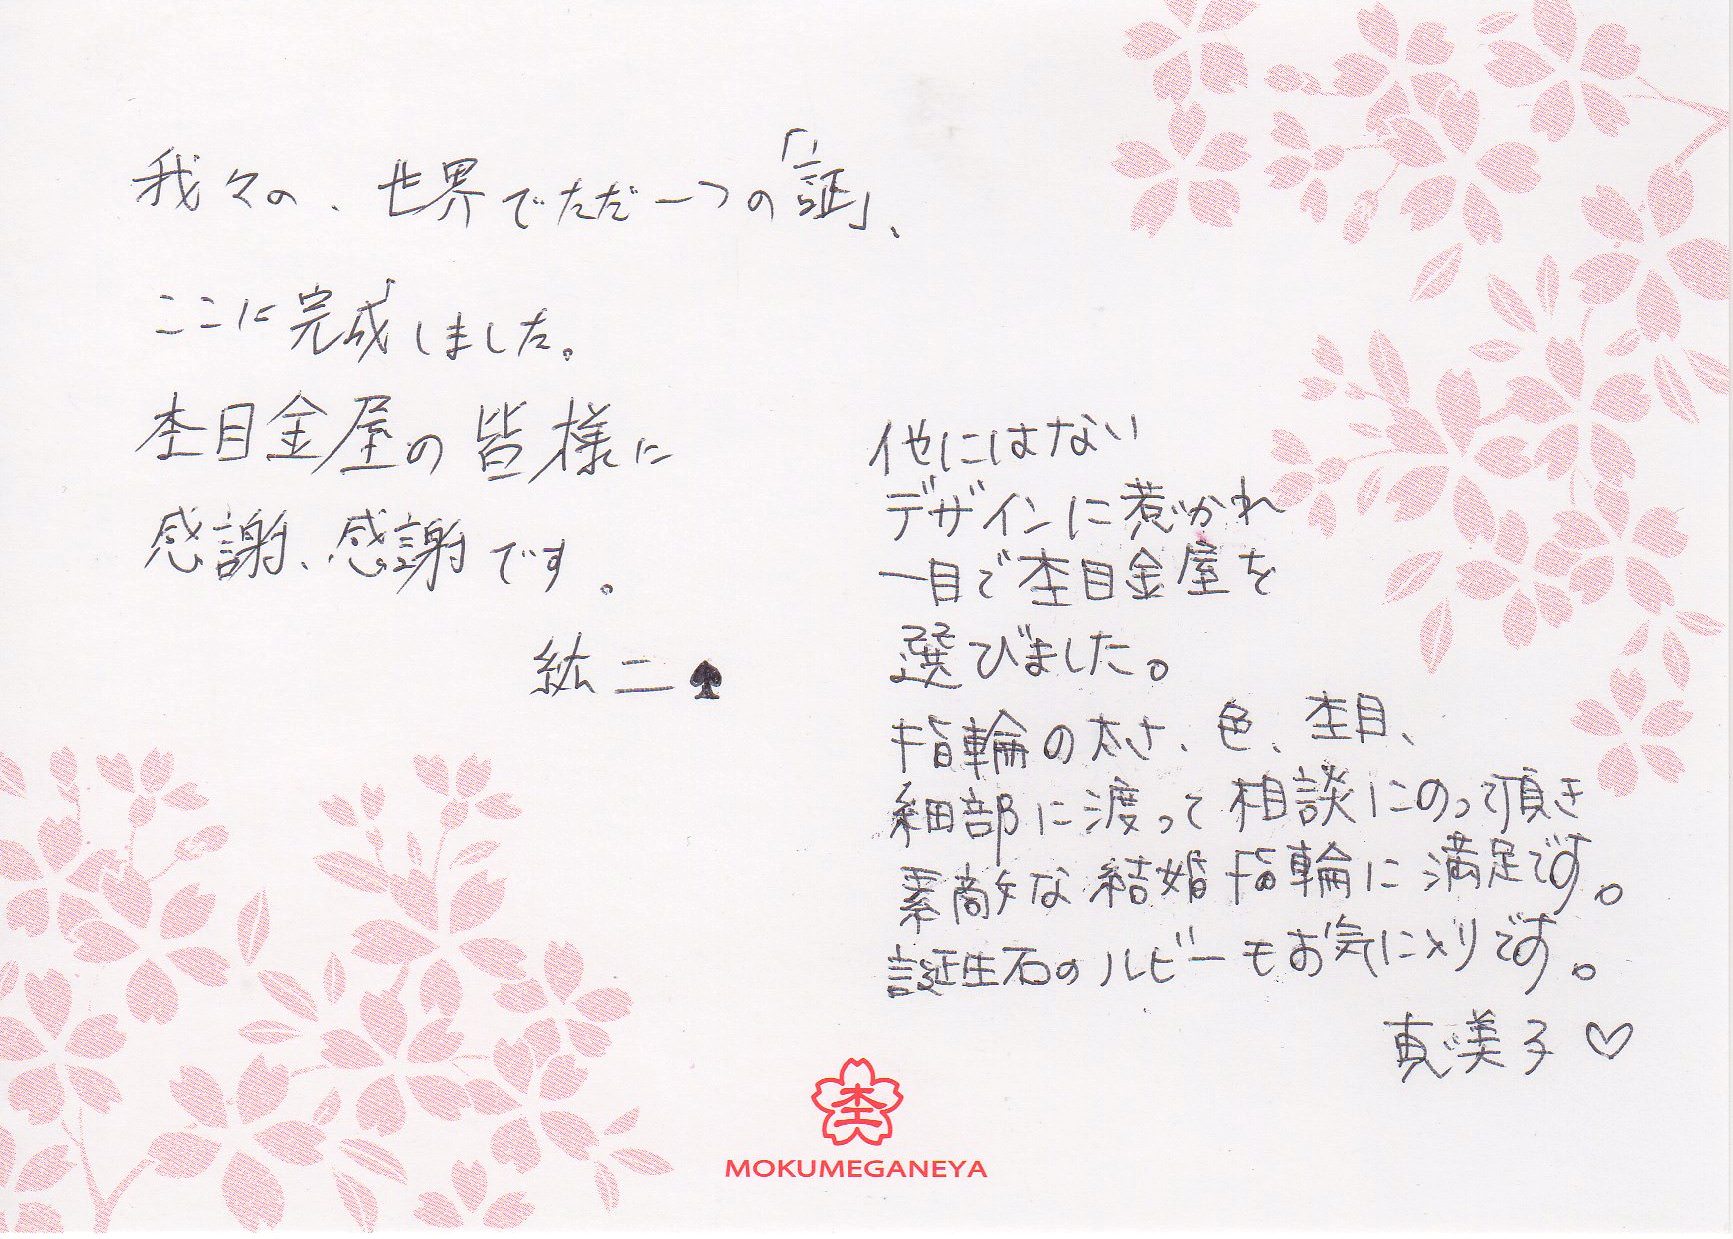 我々の、世界でただ一つの「証」、
ここに完成しました。
杢目金屋の皆様に
感謝、感謝です。
紘二♠
他にはない
デザインに惹かれ
一目で杢目金屋を
選びました。
指輪の太さ、色、杢目、
細部に渡って相談にのって頂き
素敵な結婚指輪に満足です。
誕生石のルビーもお気に入りです。
恵美子♡
杢
MOKUMEGANEYA